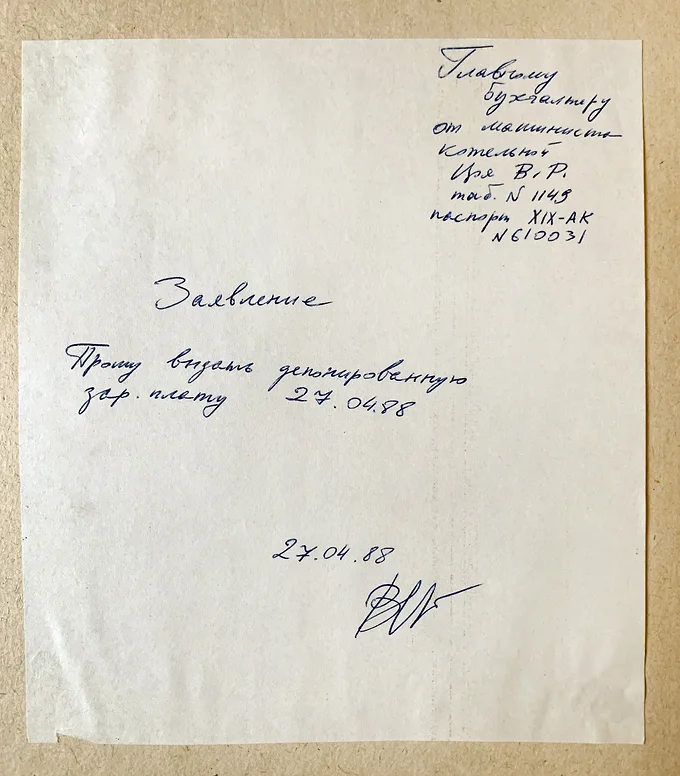 Главному
бухгалтеру
от машиниста
котельной
Цоя В.Р.
таб. N 1149
паспорт XIX-АК
N 610031
Заявление
Прошу выдать депонированную
зар. плату 27.04.88
27.04.88